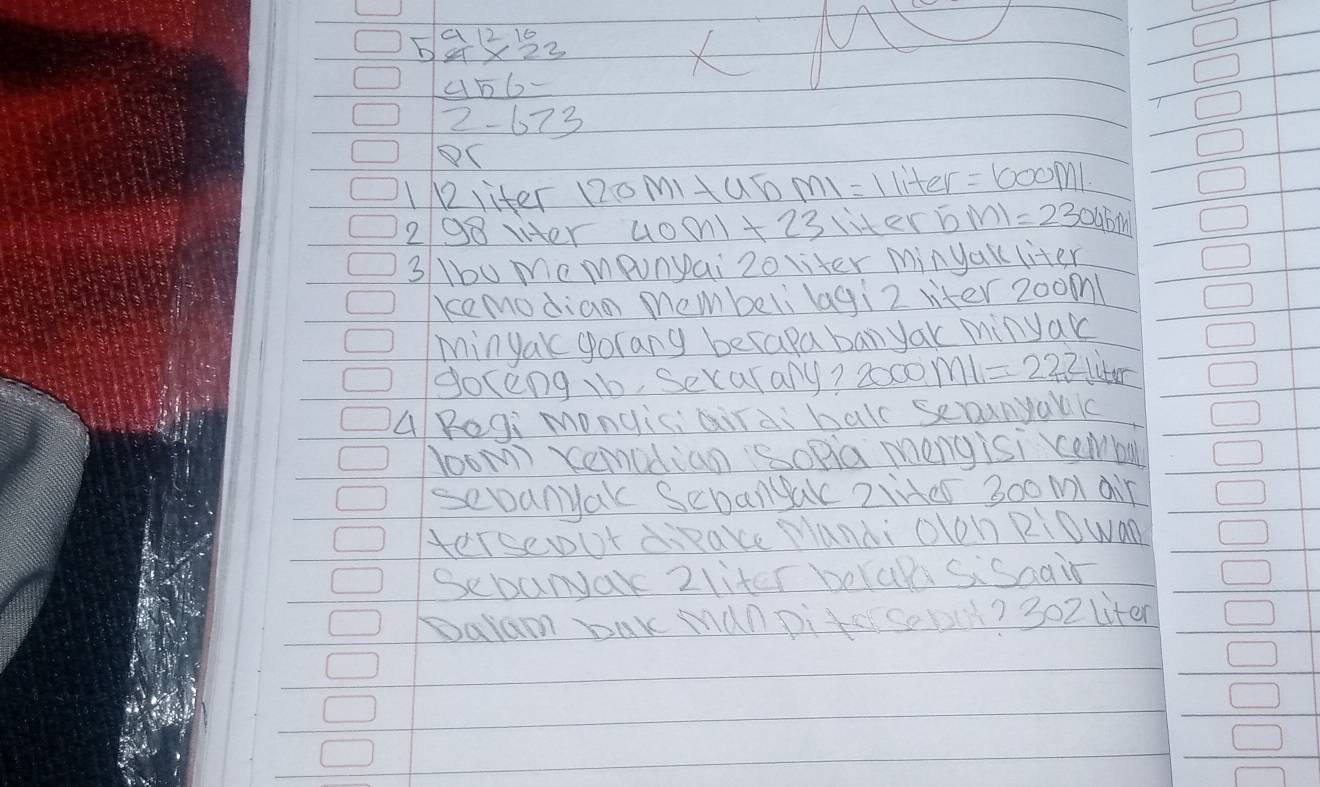 5 4 12 16
4 x 23
456-
2-673
PR
1 12 liter 120 ml + 45 ml = 1 liter = 1000 ml
2 98 liter 40 ml + 23 liter 5 ml = 23045 ml
3 Ibu mempunyai 20 liter minyak liter
kemodian membeli lagi 2 liter 200 ml
minyak gorang berapa banyak minyak
goreng ib. sekarang? 2000 ml = 222 liter
4 Regi mongisi air di bak sebanyak
100 ml kemodian Sopia mengisi
sebanyak sebanyak 2 liter 300 ml air
tersebut dipake mandi oleh Ridwan
sebanyak 2 liter berapa sisa air
Dalam bak mandi tersebut? 302 liter